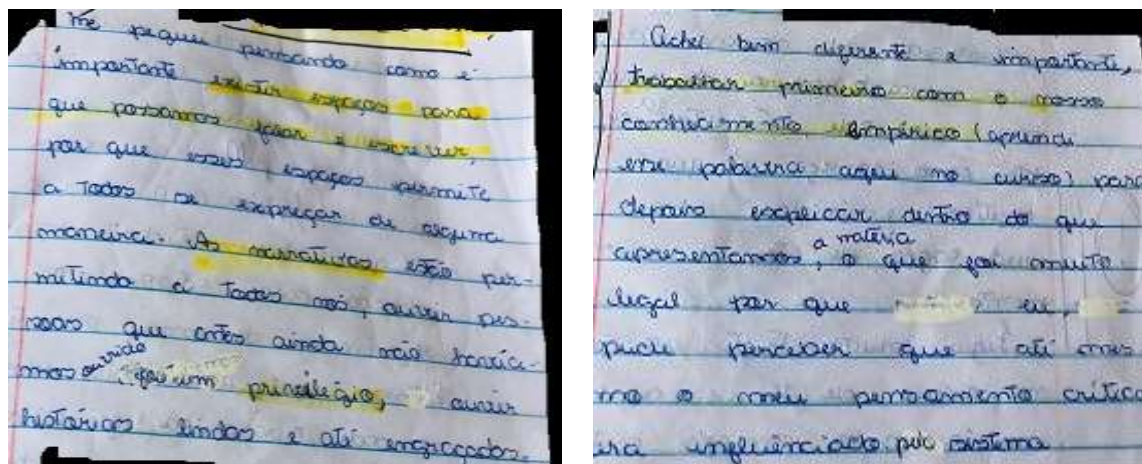 me peguei pensando como é
importante existir espaços para
que possamos falar e escrever,
por que esses espaços permite
a Todos se expreçar de alguma
maneira. As narrativas, estão per-
mitindo a Todos nós, ouvir pes-
soas que antes ainda não havía-
mos ouvido, foi um privilégio, ouvir
histórias lindas e até engraçados.
Achei bem diferente e importante,
trabalhar primeiro com o nosso
conhecimento empírico (aprendi
esse palavra aqui no curso) para
depois explicar dentro do que
apresentamos, a matéria o que foi muito
legal por que eu,
pude perceber que até mes
mo o meu pensamento crítico
era influênciado pelo sistema